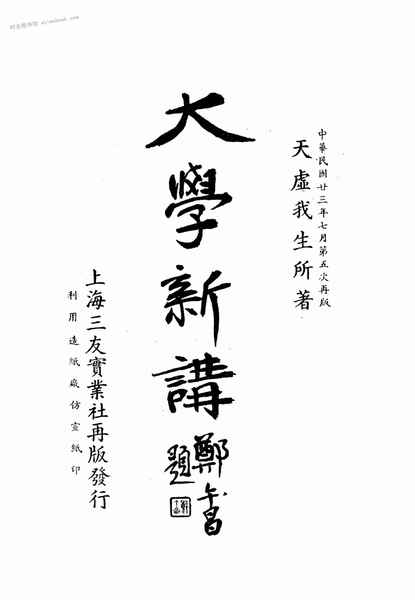 中華民國廿三年七月第五次再版
天虛我生所著
大學新講
鄭午昌
題
上海三友實業社再版發行
利用造紙廠仿宣紙印